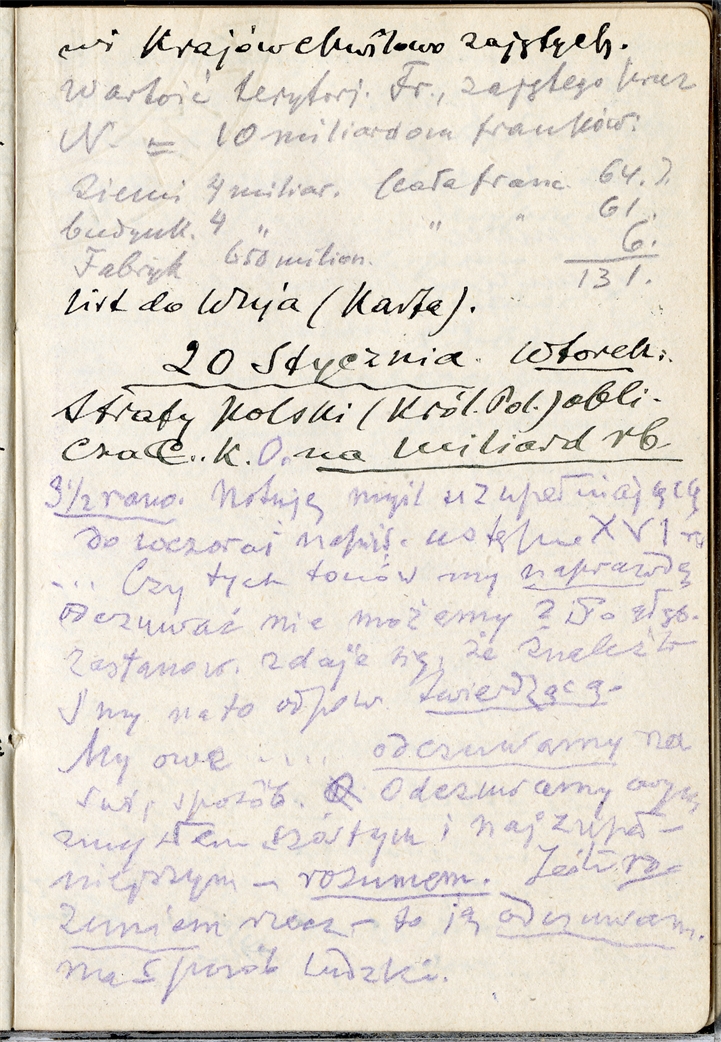 mi Krajów chwilowo zajętych.
Wartość terytorj. Fr., zajętego przez
N. = 10 miliardom franków:
Ziemi 4 miliar. Cała franc. 64.
budynk. 4 " " " 61.
Fabryk 650 milion. 6.
131.
list do Wuja (Karta).
20 Stycznia. Wtorek.
Straty Polski (Król. Pol.) obli-
cza C. K. O. na miliard rb
3 1/2 rano. Notuję myśl uzupełniającą
do wczoraj napis. ustępu XVI
... Czy tych tonów my naprawdę
odczuwać nie możemy? Po głęb.
zastanow. zdaje się, że znalazłem
na to odpow. twierdzącą.
My owe .... odczuwamy na
swój sposób. Odczuwamy owym
zmysłem szóstym i najzupeł-
niejszym – rozumem. Jeśli ro-
zumiem rzecz – to ją odczuwam.
na sposób ludzki.